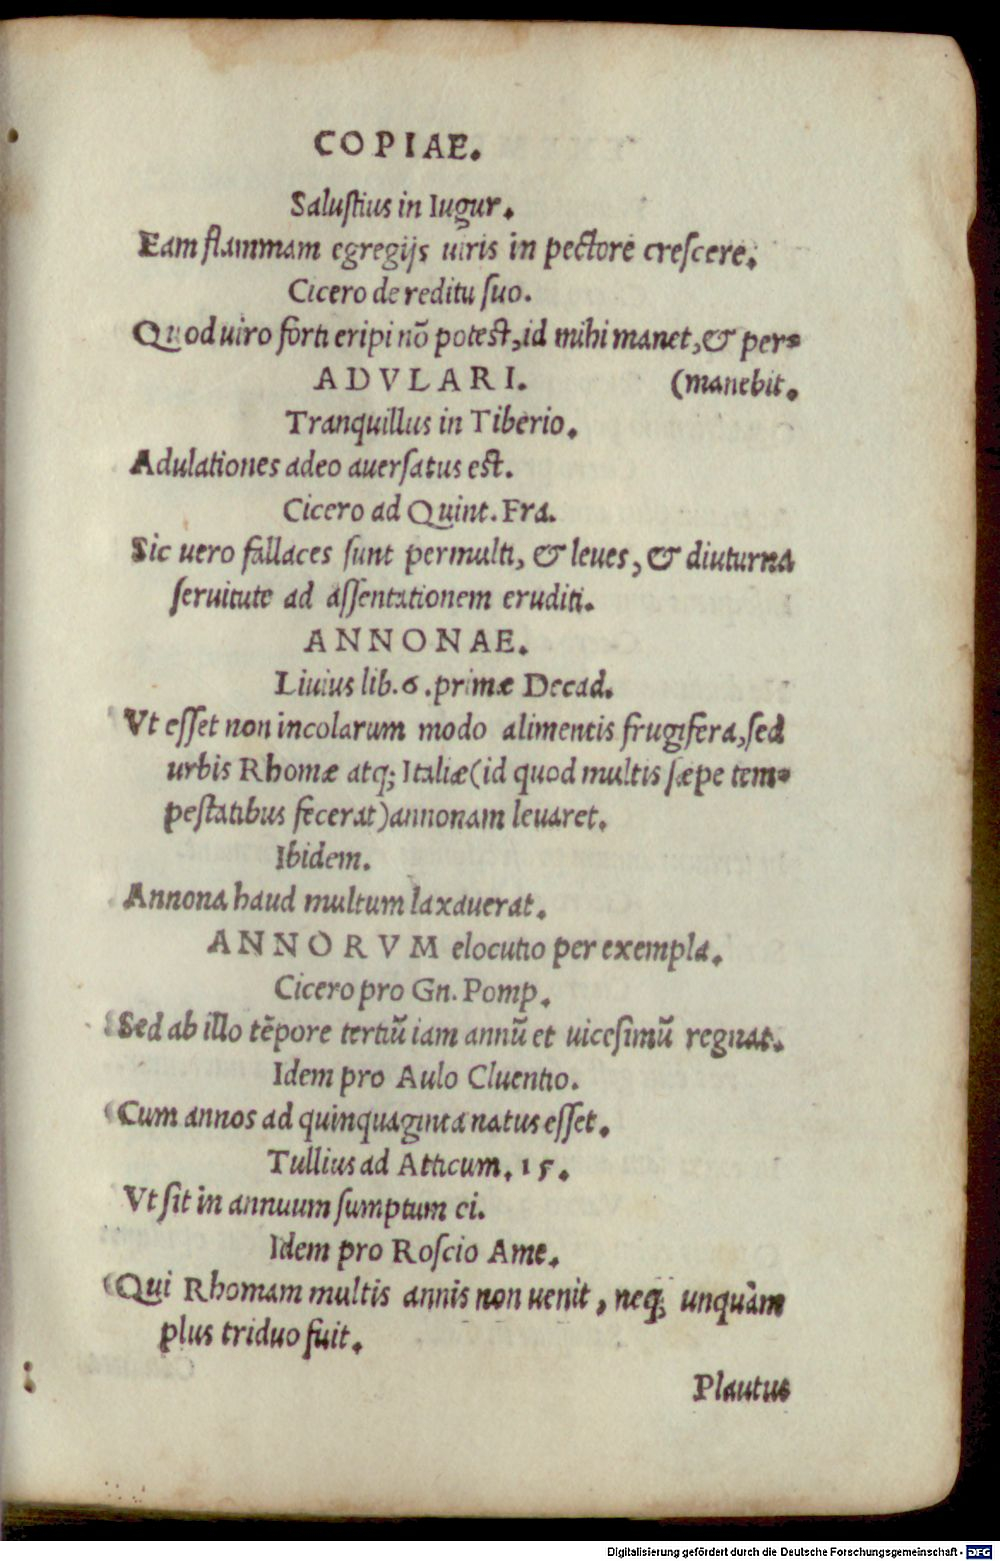 COPIAE.
Salustius in Iugur.
Eam flammam egregijs uiris in pectore crescere.
Cicero de reditu suo.
Quod uiro forti eripi nõ potest, id mihi manet, & per=
ADVLARI. (manebit.
Tranquillus in Tiberio.
Adulationes adeo auersatus est.
Cicero ad Quint. Fra.
Sic uero fallaces sunt permulti, & leues, & diuturna
seruitute ad assentationem eruditi.
ANNONAE.
Liuius lib. 6. primæ Decad.
Vt esset non incolarum modo alimentis frugifera, sed
urbis Rhomæ atq; Italiæ (id quod multis sæpe tem=
pestatibus fecerat) annonam leuaret.
Ibidem.
Annona haud multum laxauerat.
ANNORVM elocutio per exempla.
Cicero pro Gn. Pomp.
Sed ab illo tẽpore tertiũ iam annũ et uicesimũ regnat.
Idem pro Aulo Cluentio.
Cum annos ad quinquaginta natus esset.
Tullius ad Atticum. 15.
Vt sit in annuum sumptum ei.
Idem pro Roscio Ame.
Qui Rhomam multis annis non uenit, neq; unquàm
plus triduo fuit.
Plautus
Digitalisierung gefördert durch die Deutsche Forschungsgemeinschaft - DFG